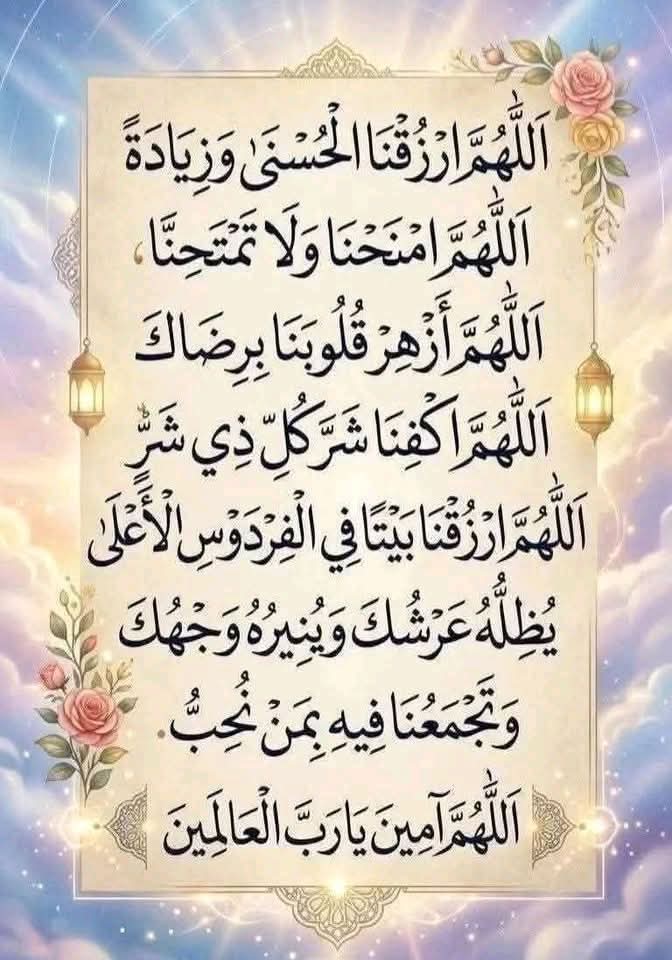 اَللّٰهُمَّ ارْزُقْنَا الْحُسْنَىٰ وَزِيَادَةً
اَللّٰهُمَّ امْنَحْنَا وَلَا تَمْتَحِنَّا،
اَللّٰهُمَّ أَزْهِرْ قُلُوبَنَا بِرِضَاكَ
اَللّٰهُمَّ اكْفِنَا شَرَّ كُلِّ ذِي شَرٍّ
اَللّٰهُمَّ ارْزُقْنَا بَيْتًا فِي الْفِرْدَوْسِ الْأَعْلَىٰ
يُظِلُّهُ عَرْشُكَ وَيُنِيرُهُ وَجْهُكَ
وَتَجْمَعُنَا فِيهِ بِمَنْ نُحِبُّ.
اَللّٰهُمَّ آمِينَ يَا رَبَّ الْعَالَمِينَ